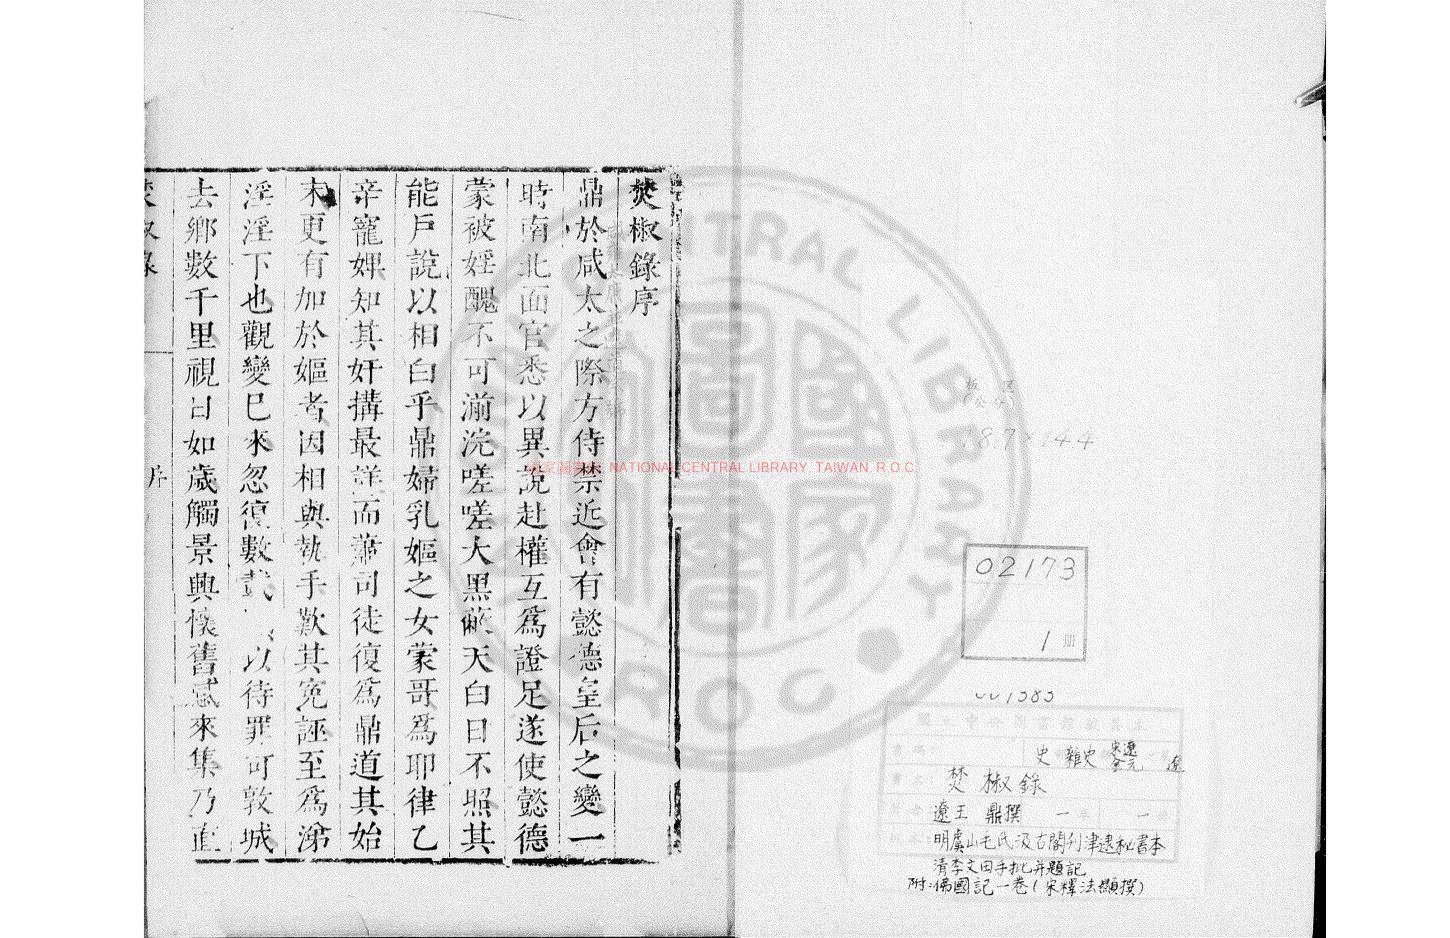 焚椒錄序
鼎於咸太之際方侍禁近會有懿德皇后之變一
時南北面官悉以異說赴權互爲證足遂使懿德
蒙被婬醜不可湔浣嗟嗟大黑蔽天白日不照其
能戶說以相白乎鼎婦乳嫗之女蒙哥爲耶律乙
辛寵婢知其奸搆最詳而蕭司徒復爲鼎道其始
末更有加於嫗者因相與執手歎其寃誣至爲涕
淫淫下也觀變已來忽復數載 以待罪可敦城
去鄉數千里視日如歲觸景興懷舊感來集乃直
椒錄
序
NATIONAL CENTRAL LIBRARY TAIWAN R.O.C
NATIONAL CENTRAL LIBRARY
國家圖書館
R O C
板 匡
(公分)
8.7×14.4
02173
1 冊
001383
史 雜史 宋遼金元 遼
焚椒錄
遼王 鼎撰 一卷 一
明虞山毛氏汲古閣刊津逮秘書本
清李文田手批并題記
附:佛國記一卷(宋釋法顯撰)